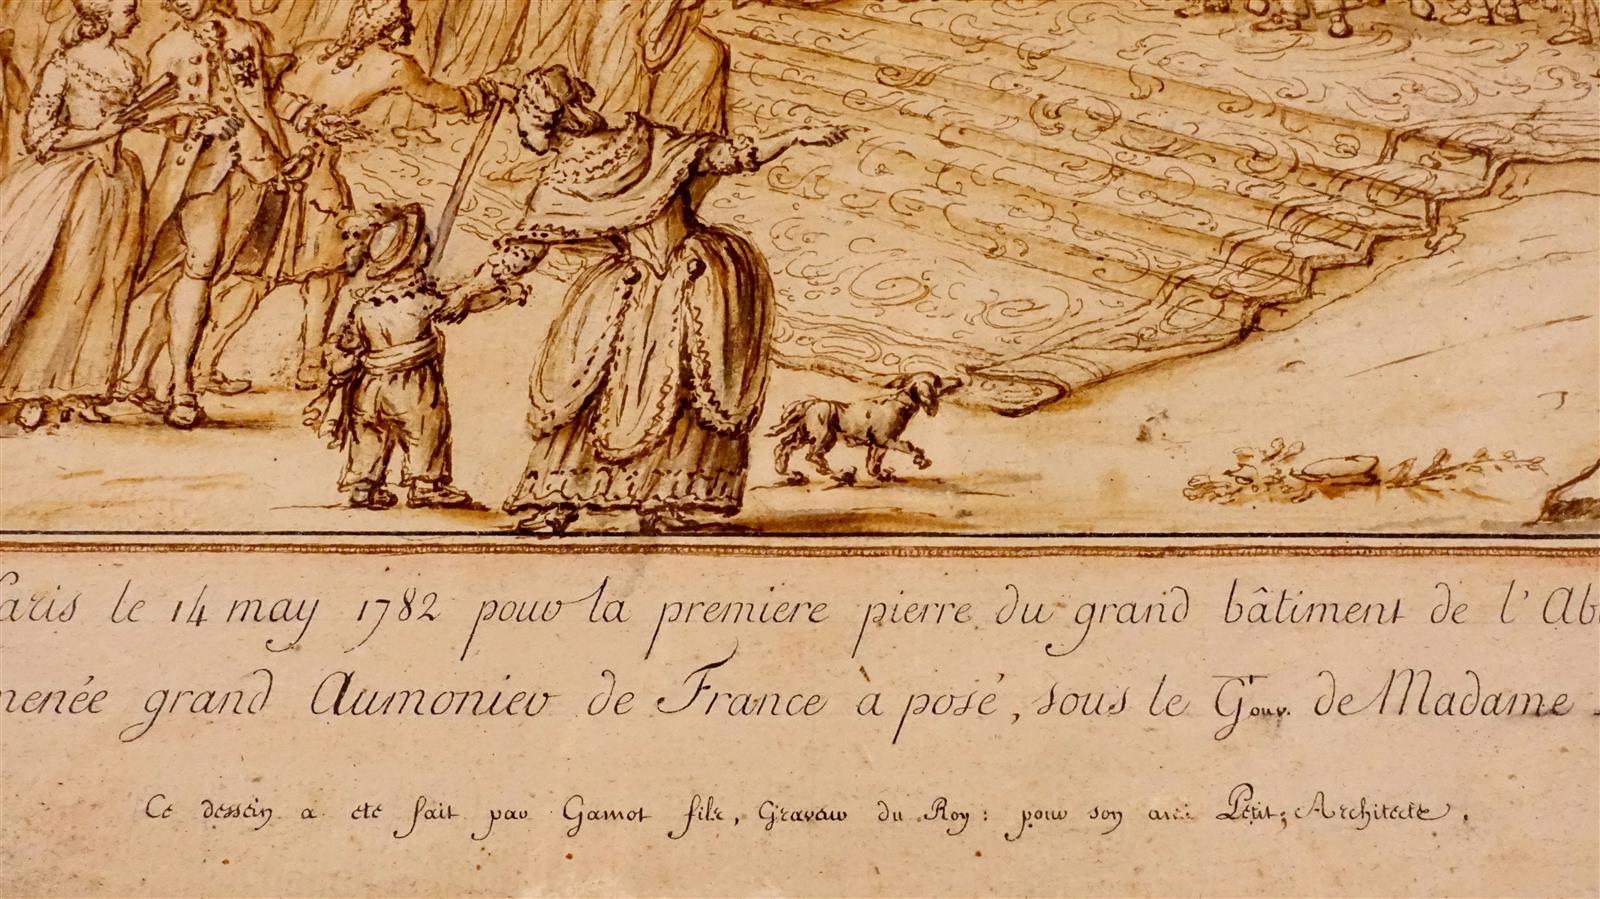 aris le 14 may 1782 pour la premiere pierre du grand bâtiment de l' Ab
menée grand Aumonier de France à posé, sous le Gouv.r de Madame
Ce dessein a eté fait par Gamot fils, Graveur du Roy: pour son ami Petit, Architecte.